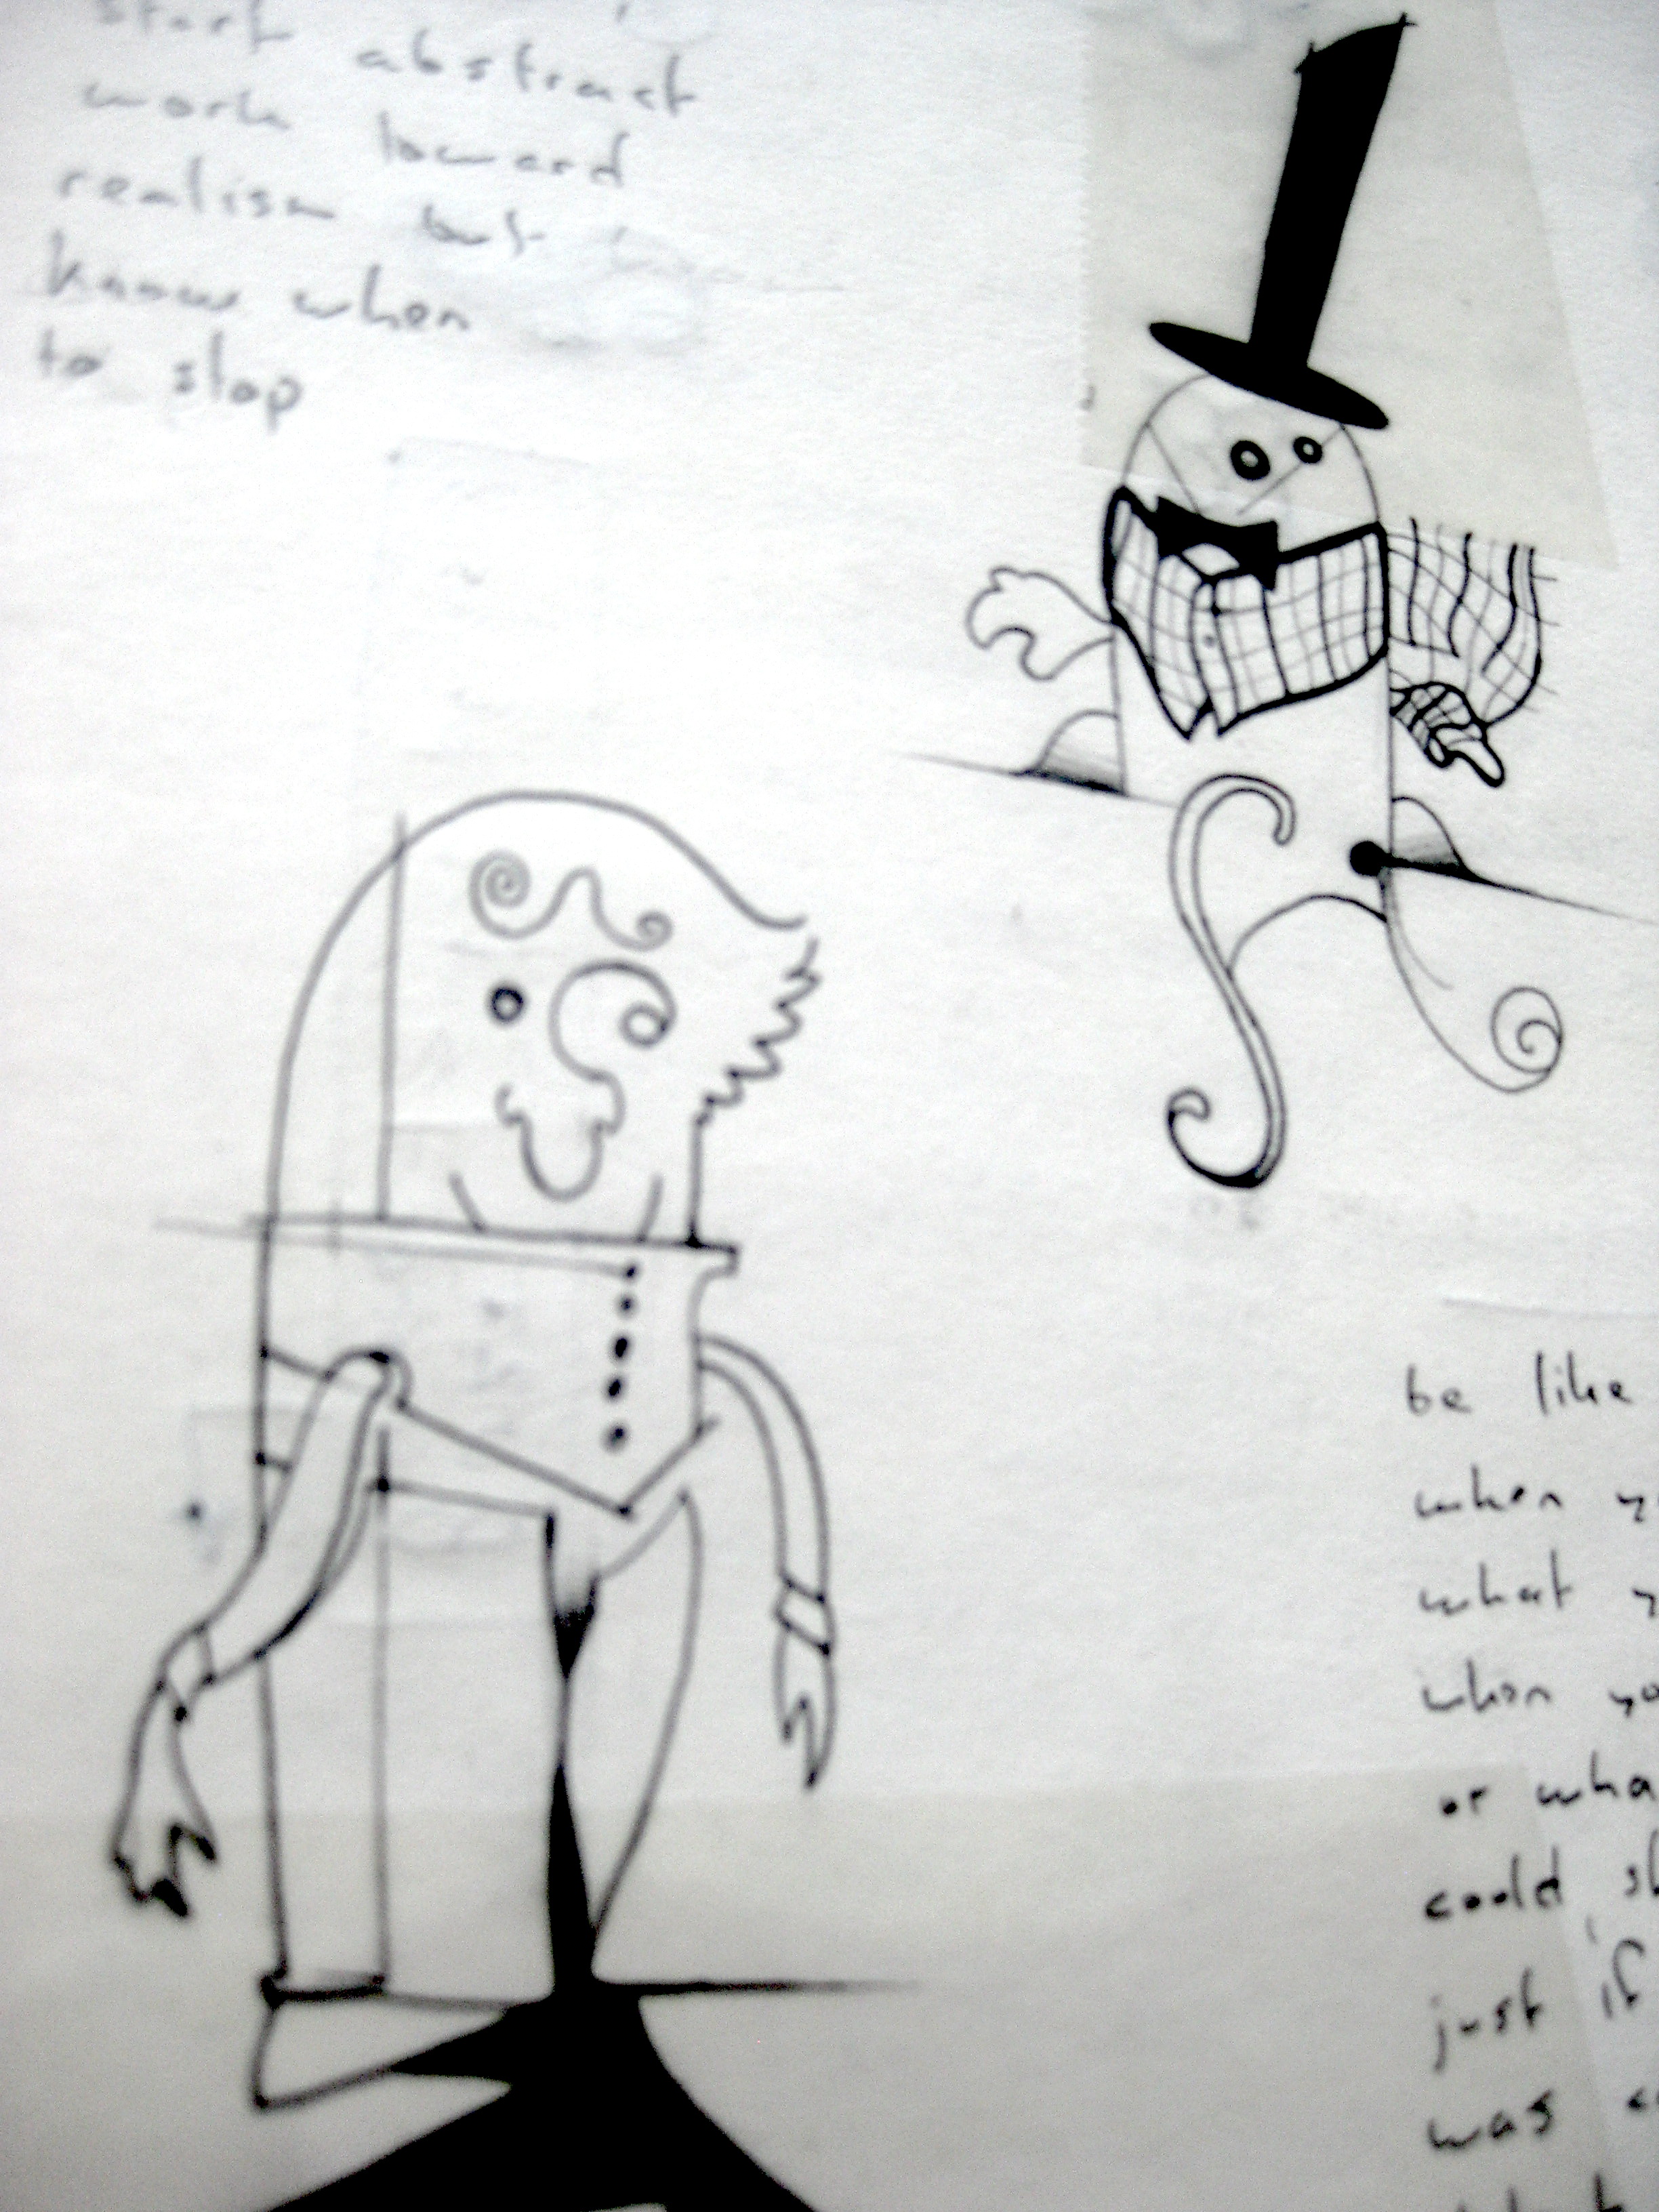 start abstract
work toward
realism but
know when
to stop
be like
when
what
when
or
could
just if
was